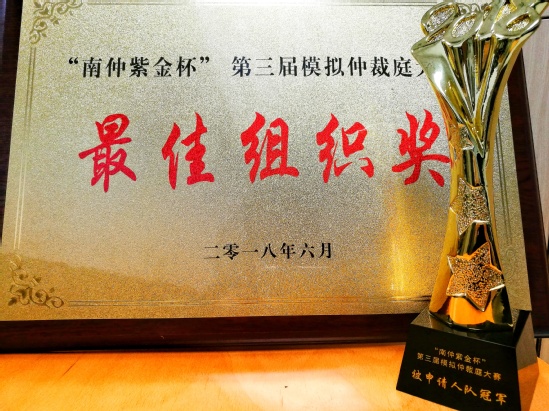 “南仲紫金杯” 第三届模拟仲裁庭大
最佳组织奖
二零一八年六月
“南仲紫金杯”
第三届模拟仲裁庭大赛
被申请人队冠军